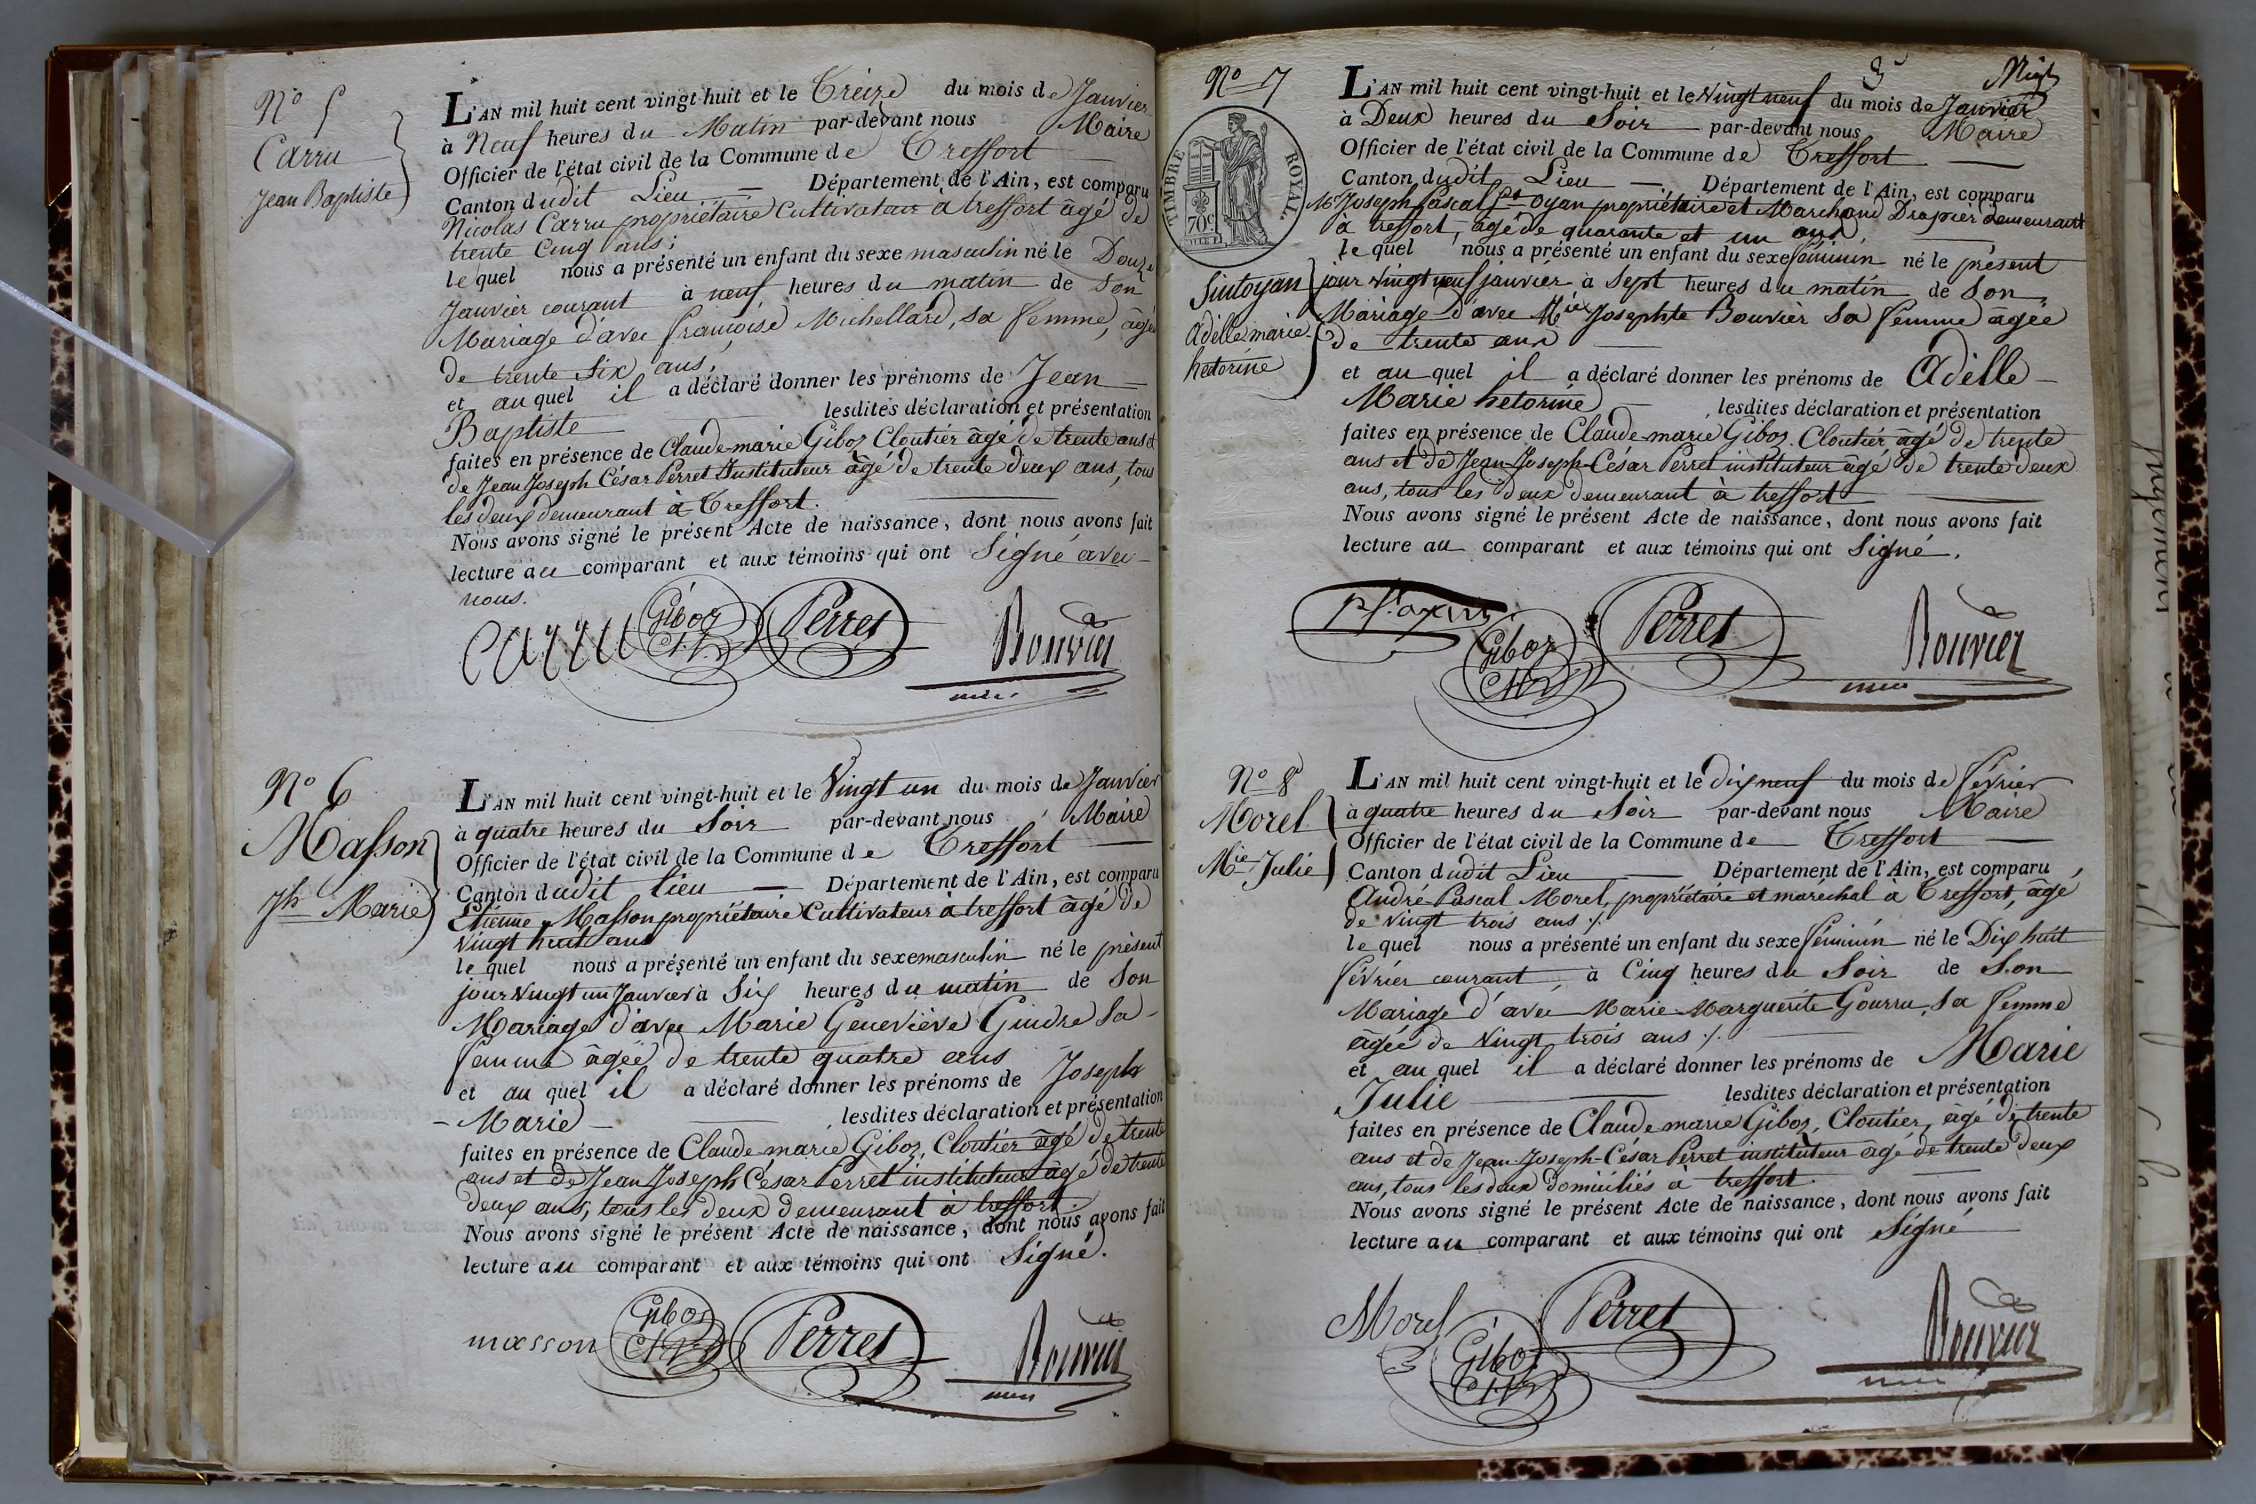 N° 5
Carru
Jean Baptiste
L'AN mil huit cent vingt-huit et le Treize du mois de Janvier
à Neuf heures du Matin par-devant nous Maire
Officier de l'état civil de la Commune de Treffort
Canton dudit Lieu Département de l'Ain, est comparu
Nicolas Carru propriétaire Cultivateur à treffort âgé de
trente Cinq ans;
lequel nous a présenté un enfant du sexe masculin né le Douze
Janvier courant à neuf heures du matin de son
Mariage d'avec françoise Michellard, sa femme, âgée
de trente Six ans,
et auquel il a déclaré donner les prénoms de Jean
Baptiste lesdites déclaration et présentation
faites en présence de Claude-marie Giboz Cloutier âgé de trente ans et
de Jean Joseph César Perret Instituteur âgé de trente deux ans, tous
les deux demeurant à Treffort.
Nous avons signé le présent Acte de naissance, dont nous avons fait
lecture au comparant et aux témoins qui ont Signé avec
nous.
carru Giboz Perret Bouvier
N° 6
Masson
Jh Marie
L'AN mil huit cent vingt-huit et le Vingt un du mois de Janvier
à quatre heures du Soir par-devant nous Maire
Officier de l'état civil de la Commune de Treffort
Canton dudit lieu Département de l'Ain, est comparu
Etienne Masson propriétaire Cultivateur à treffort âgé de
vingt huit ans
lequel nous a présenté un enfant du sexe masculin né le présent
jour vingt un Janvier à Six heures du matin de Son
Mariage d'avec Marie Geneviève Guidre Sa
femme âgée de trente quatre ans
et auquel il a déclaré donner les prénoms de Joseph
Marie lesdites déclaration et présentation
faites en présence de Claude-marie Giboz, Cloutier âgé de trente
ans et de Jean Joseph César Perret instituteur âgé de trente
deux ans, tous les deux demeurant à treffort.
Nous avons signé le présent Acte de naissance, dont nous avons fait
lecture au comparant et aux témoins qui ont Signé.
masson Giboz Perret Bouvier
3
N° 7
TIMBRE ROYAL
70c
Sintoyan
Adelle marie
hetorine
L'AN mil huit cent vingt-huit et le Vingt neuf du mois de Janvier
à Deux heures du Soir par-devant nous Maire
Officier de l'état civil de la Commune de Treffort
Canton dudit Lieu Département de l'Ain, est comparu
Mr Joseph Pascal St oyan propriétaire et Marchand Drapier demeurant
à treffort, âgé de quarante et un ans
lequel nous a présenté un enfant du sexe féminin né le présent
jour vingt neuf janvier à Sept heures du matin de Son
Mariage d'avec Mie Josephte Bouvier Sa femme âgée
de trente ans
et auquel il a déclaré donner les prénoms de Adelle
Marie hetorine lesdites déclaration et présentation
faites en présence de Claude-marie Giboz. Cloutier âgé de trente
ans et de Jean-Joseph-César Perret instituteur âgé de trente deux
ans, tous les deux demeurant à treffort
Nous avons signé le présent Acte de naissance, dont nous avons fait
lecture au comparant et aux témoins qui ont Signé.
Giboz Perret Bouvier
N° 8
Morel
Mie Julie
L'AN mil huit cent vingt-huit et le dix neuf du mois de février
à quatre heures du Soir par-devant nous Maire
Officier de l'état civil de la Commune de Treffort
Canton dudit Lieu Département de l'Ain, est comparu
André Pascal Morel, propriétaire et maréchal à Treffort, âgé
de vingt trois ans
lequel nous a présenté un enfant du sexe féminin né le Dix huit
février courant à Cinq heures du Soir de Son
Mariage d'avec Marie Marguerite Gourru, Sa femme
âgée de vingt trois ans
et auquel il a déclaré donner les prénoms de Marie
Julie lesdites déclaration et présentation
faites en présence de Claude marie Giboz, Cloutier, âgé de trente
ans et de Jean-Joseph-César Perret instituteur âgé de trente deux
ans, tous les deux domiciliés à treffort.
Nous avons signé le présent Acte de naissance, dont nous avons fait
lecture au comparant et aux témoins qui ont Signé
Morel Giboz Perret Bouvier